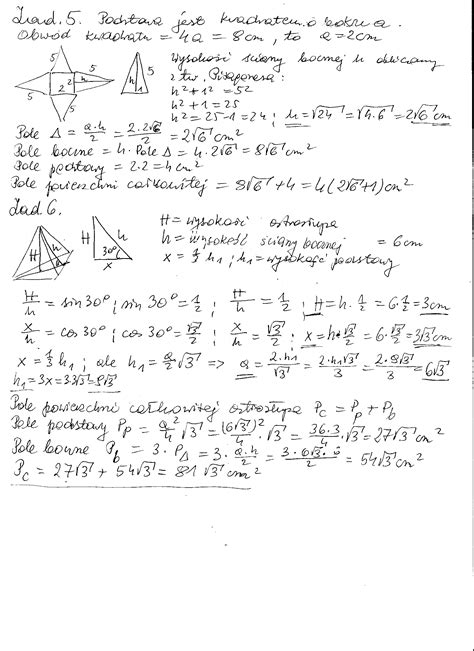 Zad. 5. Podstawa jest kwadratem o boku a.
Obwód kwadratu = 4a = 8cm, to a = 2cm
5 5 2 2 h 5 5
h 5 1
Wysokość ściany bocznej h obliczamy
z tw. Pitagorasa:
h² + 1² = 5²
h² + 1 = 25
h² = 25 - 1 = 24 ; h = √24 = √4·6 = 2√6 cm
Pole Δ = a·h/2 = 2·2√6/2 = 2√6 cm²
Pole boczne = 4 · Pole Δ = 4 · 2√6 = 8√6 cm²
Pole podstawy = 2·2 = 4 cm²
Pole powierzchni całkowitej = 8√6 + 4 = 4(2√6+1) cm²
Zad. 6.
H h 30° x
H = wysokość ostrosłupa
h = wysokość ściany bocznej = 6cm
x = 1/3 h₁ ; h₁ = wysokość podstawy
H/h = sin 30° ; sin 30° = 1/2 ; H/h = 1/2 ; H = h · 1/2 = 6 · 1/2 = 3cm
x/h = cos 30° ; cos 30° = √3/2 ; x/h = √3/2 ; x = h · √3/2 = 6 · √3/2 = 3√3 cm
x = 1/3 h₁ ; ale h₁ = a/2 √3 => a = 2·h₁/√3 = 2·h₁√3/3 = 2·9√3/ = 6√3
h₁ = 3x = 3·3√3 = 9√3
Pole powierzchni całkowitej ostrosłupa Pc = Pp + Pb
Pole podstawy Pp = a²/4 √3 = (6√3)²/4 · √3 = 36·3/4 √3 = 27√3 cm²
Pole boczne Pb = 3 · PΔ = 3 · a·h/2 = 3·6√3·6/2 = 54√3 cm²
Pc = 27√3 + 54√3 = 81√3 cm²